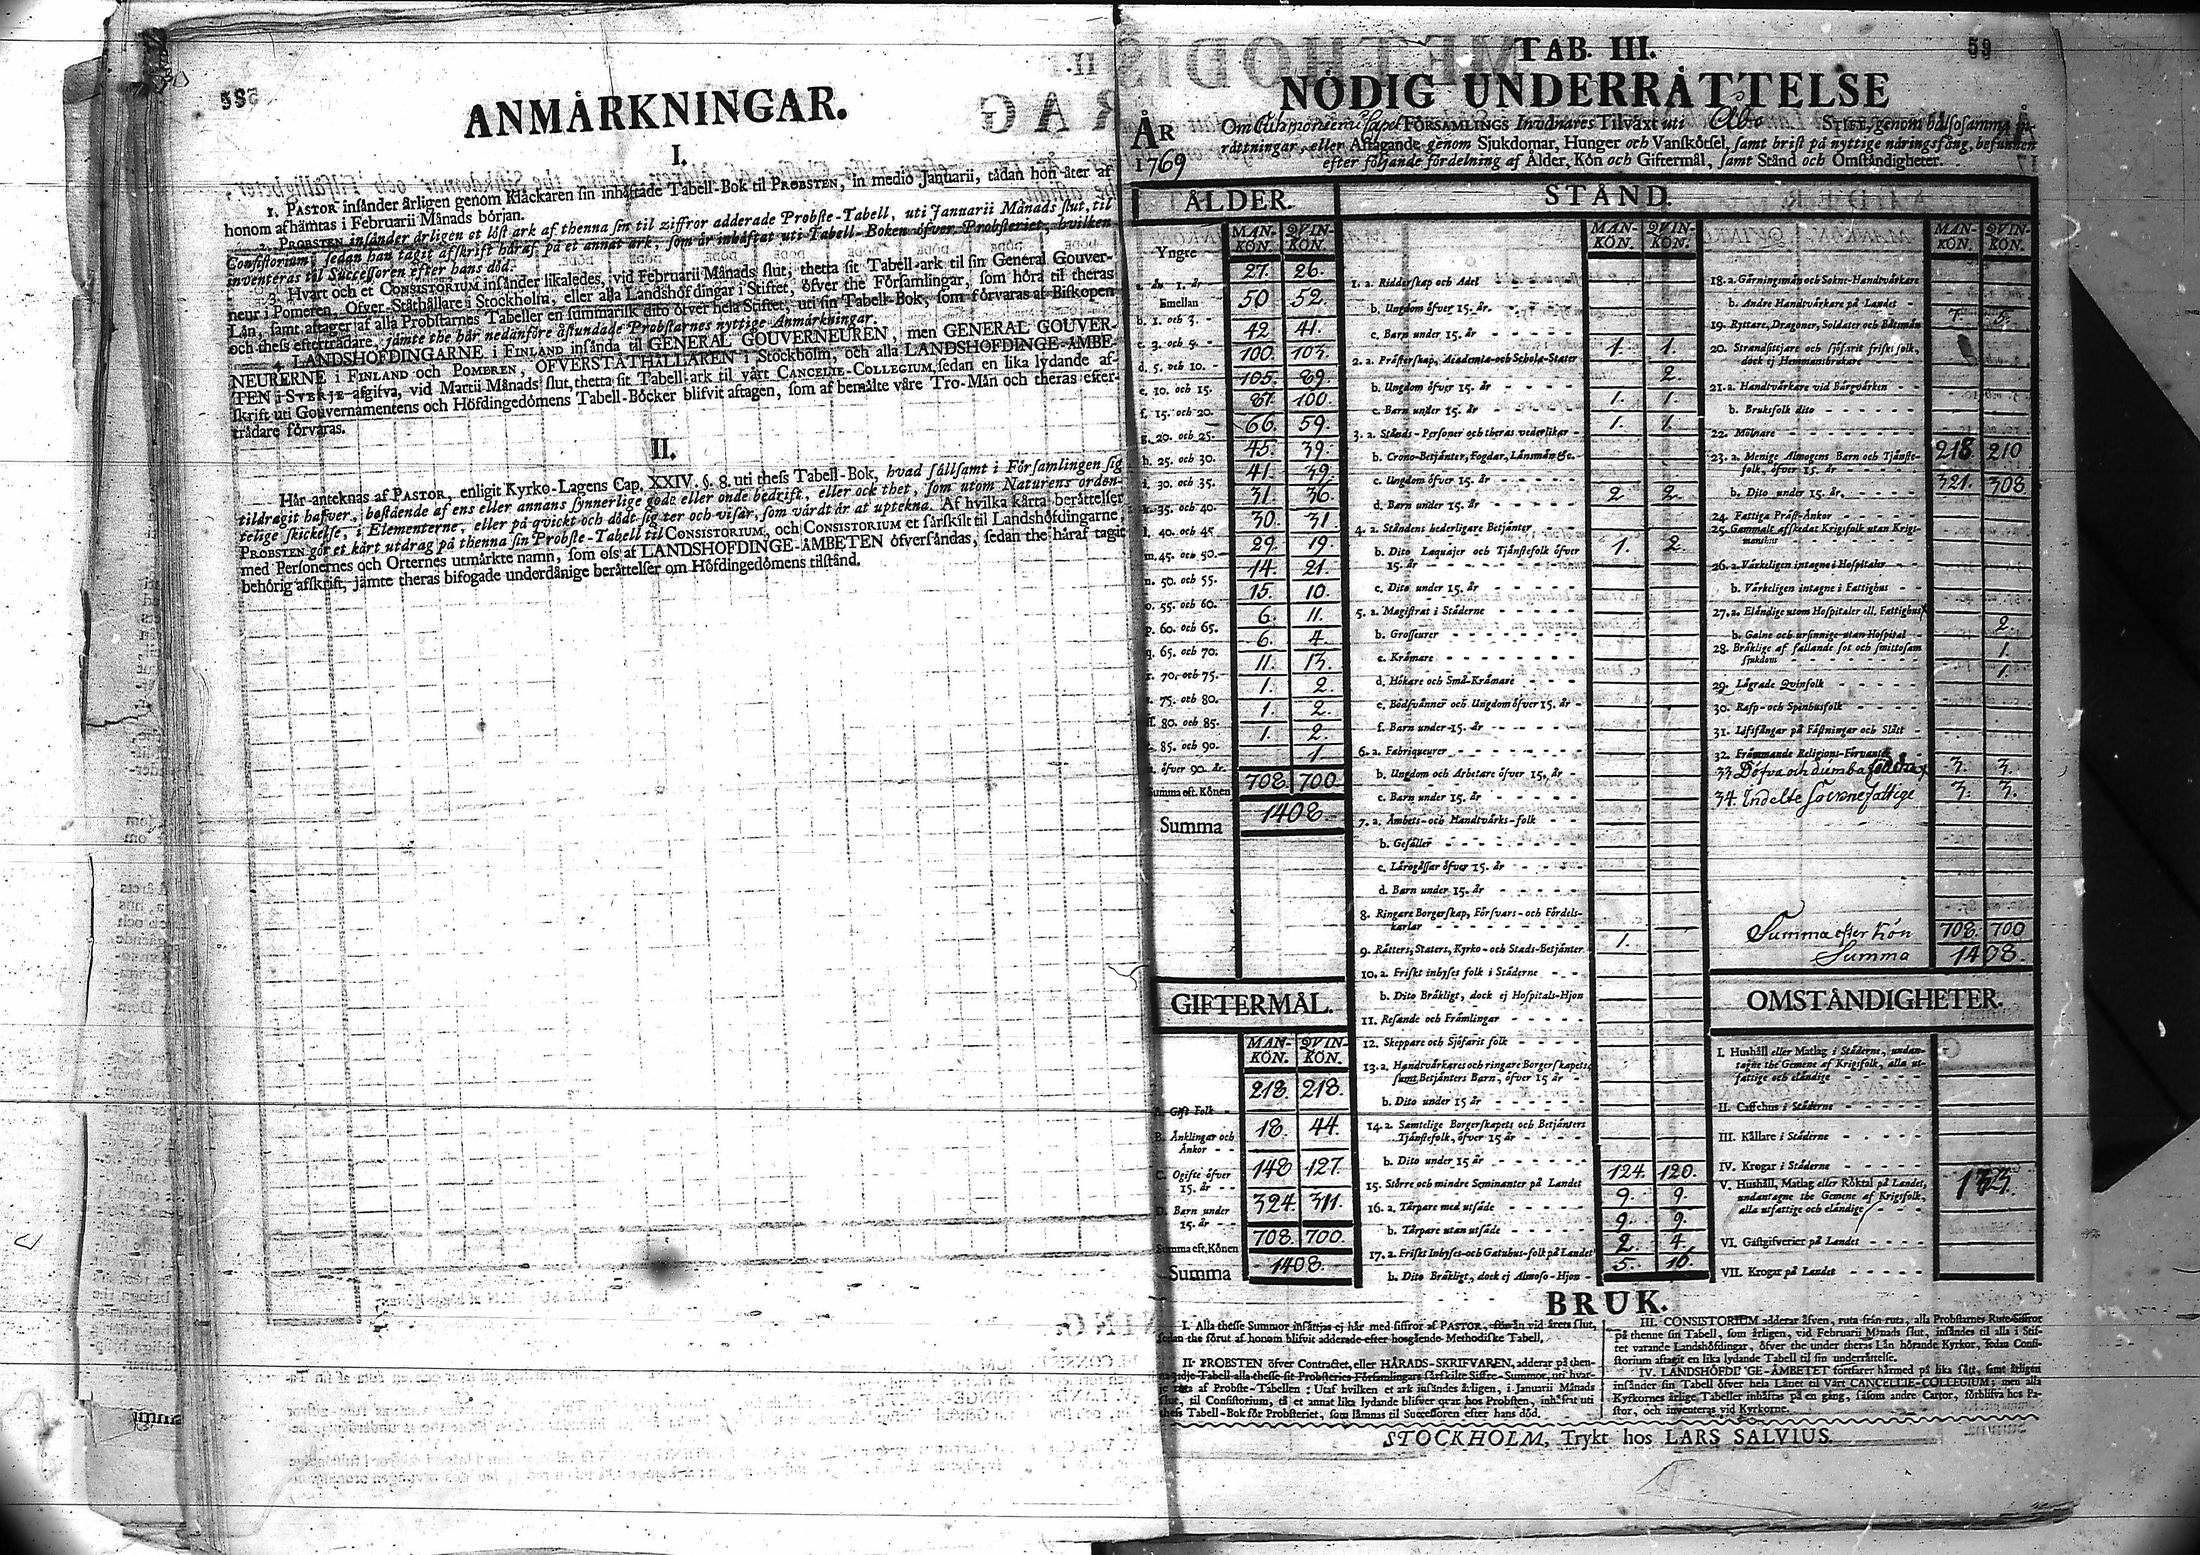 ANMÄRKNINGAR.
I.
1. PASTOR insänder årligen genom Klåckaren sin inhäftade Tabell-Bok til PROBSTEN, in medio Januarii, tådan hon åter af
honom afhämtas i Februarii Månads början.
2. PROBSTEN insänder årligen et löst ark af thenna sin til ziffror adderade Probste-Tabell, uti Januarii Månads slut, til
Consistorium, sedan han tagit afskrift häraf på et annat ark, som är inhäftat uti Tabell-Boken öfver Probsteriet, hvilken
inventeras til Successoren efter hans död.
3. Hvart och et CONSISTORIUM insänder likaledes, vid Februarii Månads slut, thetta sit Tabell-ark til sin General Gouver-
neur i Pomeren, Öfver-Ståthållare i Stockholm, eller alla Landshöfdingar i Stiftet, öfver the Församlingar, som höra til theras
Län, samt aftager af alla Probstarnes Tabeller en summarisk dito öfver hela Stiftet, uti sin Tabell-Bok, som förvaras af Biskopen
och thess efterträdare, jämte the här nedanföre åstundade Probstarnes nyttige Anmärkningar.
4. LANDSHÖFDINGARNE i FINLAND insända til GENERAL GOUVERNEUREN, men GENERAL GOUVER-
NEURERNE i FINLAND och POMEREN, ÖFVERSTÅTHÅLLAREN i Stockholm, och alla LANDSHÖFDINGE-ÄMBE-
TEN i SVERJE afgifva, vid Martii Månads slut, thetta sit Tabell-ark til vårt CANCELIE-COLLEGIUM, sedan en lika lydande af-
skrift uti Gouvernamentens och Höfdingedömens Tabell-Böcker blifvit aftagen, som af bemälte våre Tro-Män och theras efter-
trädare förvaras.
II.
Här anteknas af PASTOR, enligit Kyrko-Lagens Cap. XXIV. §. 8. uti thess Tabell-Bok, hvad sällsamt i Församlingen sig
tildragit hafver, bestående af ens eller annans synnerlige gode eller onde bedrift, eller ock thet, som utom Naturens orden-
telige skickelse, i Elementerne, eller på qvickt och dödt sig ter och visar, som värdt är at uptekna. Af hvilka kårta berättelser
PROBSTEN gör et kårt utdrag på thenna sin Probste-Tabell til CONSISTORIUM, och CONSISTORIUM et särskilt til Landshöfdingarne
med Personernes och Orternes utmärkte namn, som oss af LANDSHÖFDINGE-ÄMBETEN öfversändas, sedan the häraf tagit
behörig afskrift, jämte theras bifogade underdånige berättelser om Höfdingedömens tilstånd.
59
TAB. III.
NÖDIG UNDERRÄTTELSE
ÅR 1769
Om FÖRSAMLINGS Invånares Tilväxt uti Åbo STIFT, genom hälsosamma in-
rättningar, eller Aftagande genom Sjukdomar, Hunger och Vanskötsel, samt brist på nyttige näringsfång, befunnen
efter följande fördelning af Ålder, Kön och Giftermål, samt Stånd och Omständigheter.
ÅLDER.
MAN-KÖN. QVIN-KÖN.
Yngre
än 1. år 27. 26.
Emellan
b. 1. och 3. - 50 52
c. 3. och 5. - 42. 41.
d. 5. och 10. - 100. 103.
e. 10. och 15. 105. 89.
f. 15. och 20. 87. 100.
g. 20. och 25. 66. 59.
h. 25. och 30. 45. 39.
i. 30. och 35. 41. 39.
k. 35. och 40. 31. 36.
l. 40. och 45. 30. 31.
m. 45. och 50. 29. 19.
n. 50. och 55. 14. 21.
o. 55. och 60. 15. 10.
p. 60. och 65. 6. 11.
q. 65. och 70. 6. 4.
r. 70. och 75. 11. 13.
s. 75. och 80. 1. 2.
80. och 85. 1. 2.
85. och 90. 1. 2.
öfver 90. år 1
Summa eft. Könen 708. 700.
Summa 1408.
GIFTERMÅL.
MAN-KÖN. QVIN-KÖN.
A. Gift Folk - 218. 218.
B. Änklingar och Änkor - - 18. 44.
C. Ogifte öfver 15. år - - 148 127.
D. Barn under 15. år - - 324. 311.
Summa eft. Könen 708. 700.
Summa 1408.
STÅND.
MAN-KÖN. QVIN-KÖN.
1. a. Ridderskap och Adel
b. Ungdom öfver 15. år.
c. Barn under 15. år
2. a. Prästerskap, Academia- och Schola-Stater 1. 1.
b. Ungdom öfver 15. år 2.
c. Barn under 15. år 1. 1.
3. a. Stånds-Personer och theras vederlikar 1. 1.
b. Crono-Betjänter, Fogdar, Länsmän &c.
c. Ungdom öfver 15. år
d. Barn under 15. år 2 2.
4. a. Ståndens hederligare Betjänter
b. Dito Laquajer och Tjänstefolk öfver 15. år 1. 2.
c. Dito under 15. år
5. a. Magistrat i Städerne
b. Grosseurer
c. Krämare
d. Hökare och Små-Krämare
e. Bodsvänner och Ungdom öfver 15. år
f. Barn under 15. år
6. a. Fabriqueurer
b. Ungdom och Arbetare öfver 15. år
c. Barn under 15. år
7. a. Ämbets- och Handtvärks-folk
b. Gesäller
c. Lärogåssar öfver 15. år
d. Barn under 15. år
8. Ringare Borgerskap, Försvars- och Fördels-karlar
9. Rätters, Staters, Kyrko- och Stads-Betjänter 1.
10. a. Friskt inhyses folk i Städerne
b. Dito Bräkligt, dock ej Hospitals-Hjon
11. Resande och Främlingar
12. Skeppare och Sjöfarit folk
13. a. Handtvärkares och ringare Borgerskapets, samt Betjänters Barn, öfver 15 år
b. Dito under 15 år
14. a. Samtelige Borgerskapets och Betjänters Tjänstefolk, öfver 15 år
b. Dito under 15 år
15. Större och mindre Seminanter på Landet 124. 120.
16. a. Tårpare med utsäde 9. 9.
b. Tårpare utan utsäde 9. 9.
17. a. Friskt Inhyses- och Gatuhus-folk på Landet 2. 4.
b. Dito Bräkligt, dock ej Almoso-Hjon 5. 16.
MAN-KÖN. QVIN-KÖN.
18. a. Gärningsmän och Sokne-Handtvärkare
b. Andre Handtvärkare på Landet
19. Ryttare, Dragoner, Soldater och Båtsmän 7. 5.
20. Strandsittjare och sjöfarit friskt folk, dock ej Hemmansbrukare
21. a. Handtvärkare vid Bärgvärken
b. Bruksfolk dito
22. Mölnare
23. a. Menige Almogens Barn och Tjänste-folk, öfver 15. år 218. 210
b. Dito under 15. år. 321. 308
24. Fattiga Präst-Änkor
25. Gammalt afskedat Krigsfolk utan Krigs-manshus
26. a. Värkeligen intagne i Hospitaler
b. Värkeligen intagne i Fattighus
27. a. Eländige utom Hospitaler ell. Fattighus
b. Galne och ursinnige utan Hospital 2.
28. Bräklige af fallande sot och smittosam sjukdom 1.
29. Lägrade Qvinfolk 1.
30. Rasp- och Spinhusfolk
31. Lifsfångar på Fästningar och Slått
32. Främmande Religions-Förvanter
33 Döfva och dumba födda 3. 3.
34. Indelte Socknefattige 3. 3.
Summa efter Kön 708. 700
Summa 1408.
OMSTÄNDIGHETER.
I. Hushåll eller Matlag i Städerne, undan-
tagne the Gemene af Krigsfolk, alla ut-
fattige och eländige
II. Caffehus i Städerne
III. Källare i Städerne
IV. Krogar i Städerne
V. Hushåll, Matlag eller Röktal på Landet,
undantagne the Gemene af Krigsfolk,
alla utfattige och eländige 133.
VI. Gästgifverier på Landet
VII. Krogar på Landet
BRUK.
I. Alla thesse Summor insättjas ej här med siffror af PASTOR, förrän vid årets slut,
sedan the förut af honom blifvit adderade efter hosgående Methodiske Tabell.
II. PROBSTEN öfver Contractet, eller HÄRADS-SKRIFVAREN, adderar på then-
na tredje Tabell alla thesse sit Probsteries Församlingars särskilte Siffre-Summor, uti hvar-
je ruta af Probste-Tabellen: Utaf hvilken et ark insändes årligen, i Januarii Månads
slut, til Consistorium, så et annat lika lydande blifver qvar hos Probsten, inhäftat uti
thess Tabell-Bok för Probsteriet, som lämnas til Successoren efter hans död.
III. CONSISTORIUM adderar äfven, ruta från ruta, alla Probstarnes Rute-Siffror
på thenne sin Tabell, som årligen, vid Februarii Månads slut, insändes til alla i Stif-
tet varande Landshöfdingar, öfver the under theras Län hörande Kyrkor, sedan Consi-
storium aftagit en lika lydande Tabell til sin underrättelse.
IV. LANDSHÖFDINGE-ÄMBETET fortfarer härmed på lika sätt, samt årligen
insänder sin Tabell öfver hela Länet til Vårt CANCELLIE-COLLEGIUM; men alla
Kyrkornes årlige Tabeller inhäftas på en gång, såsom andre Cartor, förblifva hos Pa-
stor, och inventeras vid Kyrkorne.
STOCKHOLM, Trykt hos LARS SALVIUS.